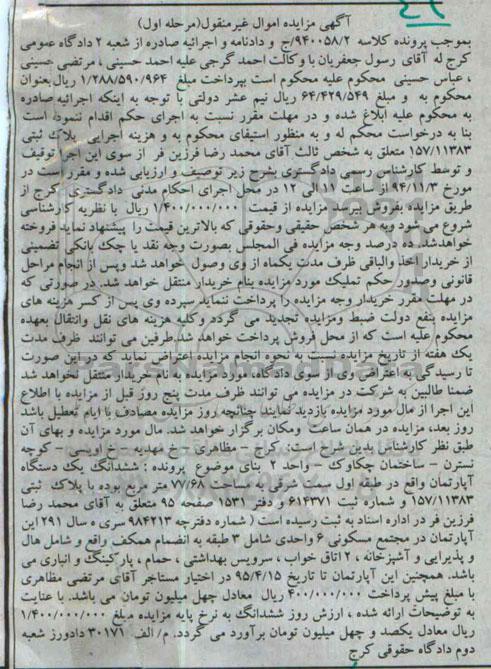 آگهی مزایده اموال غیرمنقول(مرحله اول)
بموجب پرونده کلاسه ۹۴۰۰۵۸/۲/ج و دادنامه و اجرائیه صادره از شعبه ۲ دادگاه عمومی
کرج له آقای رسول جعفریان با وکالت احمد گرجی علیه احمد حسینی ، مرتضی حسینی
، عباس حسینی محکوم علیه محکوم است بپرداخت مبلغ ۱/۲۸۸/۵۹۰/۹۶۴ ریال بعنوان
محکوم به و مبلغ ۶۴/۴۲۹/۵۴۹ ریال نیم عشر دولتی با توجه به اینکه اجرائیه صادره
به محکوم علیه ابلاغ شده و در مهلت مقرر نسبت به اجرای حکم اقدام ننموده است
بنا به درخواست محکم له و به منظور استیفای محکوم به و هزینه اجرایی پلاک ثبتی
۱۵۷/۱۱۳۸۳ متعلق به شخص ثالث آقای محمد رضا فرزین فر از سوی این اجرا توقیف
و توسط کارشناس رسمی دادگستری بشرح زیر توصیف و ارزیابی شده و مقرر است در
مورخ ۹۴/۱۱/۳ از ساعت ۱۱ الی ۱۲ در محل اجرای احکام مدنی دادگستری کرج از
طریق مزایده بفروش برسد. مزایده از قیمت ۱/۴۰۰/۰۰۰/۰۰۰ ریال با نظریه کارشناسی
شروع می شود وبه هر شخص حقیقی وحقوقی که بالاترین قیمت را پیشنهاد نماید فروخته
خواهدشد. ده درصد وجه مزایده فی المجلس بصورت وجه نقد یا چک بانکی تضمینی
از خریدار اخذ والباقی ظرف مدت یکماه از وی وصول خواهد شد وپس از انجام مراحل
قانونی وصدور حکم تملیک مورد مزایده بنام خریدار منتقل خواهد شد. در صورتی که
در مهلت مقرر خریدار وجه مزایده را پرداخت ننماید سپرده وی پس از کسر هزینه های
مزایده بنفع دولت ضبط ومزایده تجدید می گردد وکلیه هزینه های نقل وانتقال بعهده
محکوم علیه است که از محل فروش پرداخت خواهد شد.طرفین می توانند ظرف مدت
یک هفته از تاریخ مزایده نسبت به نحوه انجام مزایده اعتراض نماید که در این صورت
تا رسیدگی به اعتراض وی از سوی دادگاه، مورد مزایده به نام خریدار منتقل نخواهد شد
ضمنا طالبین به شرکت در مزایده می توانند ظرف مدت پنج روز قبل از مزایده با اطلاع
این اجرا از مال مورد مزایده بازدید نمایند چنانچه روز مزایده مصادف با ایام تعطیل باشد
روز بعد، مزایده در همان ساعت ومکان برگزار خواهد شد. مال مورد مزایده و بهای آن
طبق نظر کارشناس بدین شرح است: کرج – مظاهری – خ مهدیه – خ اویسی – کوچه
نسترن – ساختمان چکاوک – واحد ۲ بنای موضوع پرونده : ششدانگ یک دستگاه
آپارتمان واقع در طبقه اول سمت شرقی به مساحت ۷۷/۶۸ متر مربع بوده با پلاک ثبتی
۱۵۷/۱۱۳۸۳ و شماره ثبت ۶۱۴۳۷۱ و دفتر ۱۵۳۱ صفحه ۹۵ متعلق به آقای محمد رضا
فرزین فر در اداره اسناد به ثبت رسیده است ( شماره دفترچه ۹۸۴۲۱۳ سری ه سال ۲۹۱ این
آپارتمان در مجتمع مسکونی ۶ واحدی شامل ۳ طبقه به انضمام همکف واقع و شامل هال
و پذیرایی و آشپزخانه ، ۲ اتاق خواب ، سرویس بهداشتی ، حمام ، پارکینگ و انباری می
باشد. همچنین این آپارتمان تا تاریخ ۹۵/۴/۱۵ در اختیار مستاجر آقای مرتضی مظاهری
با مبلغ پیش پرداخت ۴۰۰/۰۰۰/۰۰۰ ریال معادل چهل میلیون تومان می باشد. با عنایت
به توضیحات ارائه شده ، ارزش روز ششدانگ به نرخ پایه مزایده مبلغ ۱/۴۰۰/۰۰۰/۰۰۰
ریال معادل یکصد و چهل میلیون تومان برآورد می گردد. م/ الف ۳۰۱۷۱ دادورز شعبه
دوم دادگاه حقوقی کرج